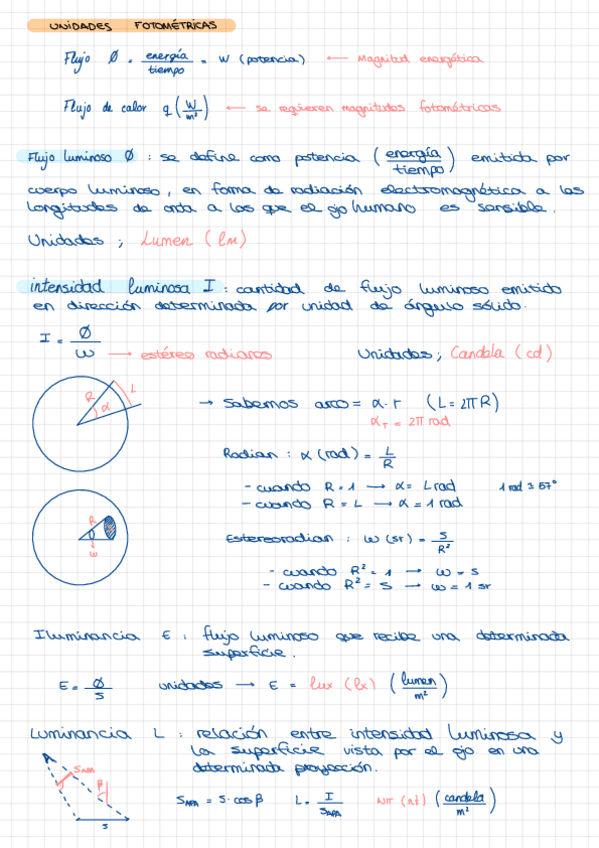 UNIDADES FOTOMÉTRICAS
Flujo Ø = energía / tiempo = W (potencia) ← Magnitud energética
Flujo de calor q (W/m²) ← se requieren magnitudes fotométricas
Flujo luminoso Ø : se define como potencia (energía / tiempo) emitida por
cuerpo luminoso, en forma de radiación electromagnética a las
longitudes de onda a las que el ojo humano es sensible.
Unidades ; Lumen (lm)
intensidad luminosa I : cantidad de flujo luminoso emitido
en dirección determinada por unidad de ángulo sólido.
I = Ø / ω → estéreo radianes Unidades ; Candela (cd)
R α L
→ Sabemos arco = α · r (L = 2π R)
αr = 2π rad
Radian : α (rad) = L / R
- cuando R = 1 → α = L rad 1 rad ≅ 57°
- cuando R = L → α = 1 rad
R ω
Estereoradian : ω (sr) = S / R²
- cuando R² = 1 → ω = S
- cuando R² = S → ω = 1 sr
Iluminancia E : flujo luminoso que recibe una determinada
superficie.
E = Ø / S unidades → E = lux (lx) (lumen / m²)
Luminancia L : relación entre intensidad luminosa y
la superficie vista por el ojo en una
determinada proyección.
SAPA β S
SAPA = S · cos β L = I / SAPA NIT (nt) (candela / m²)